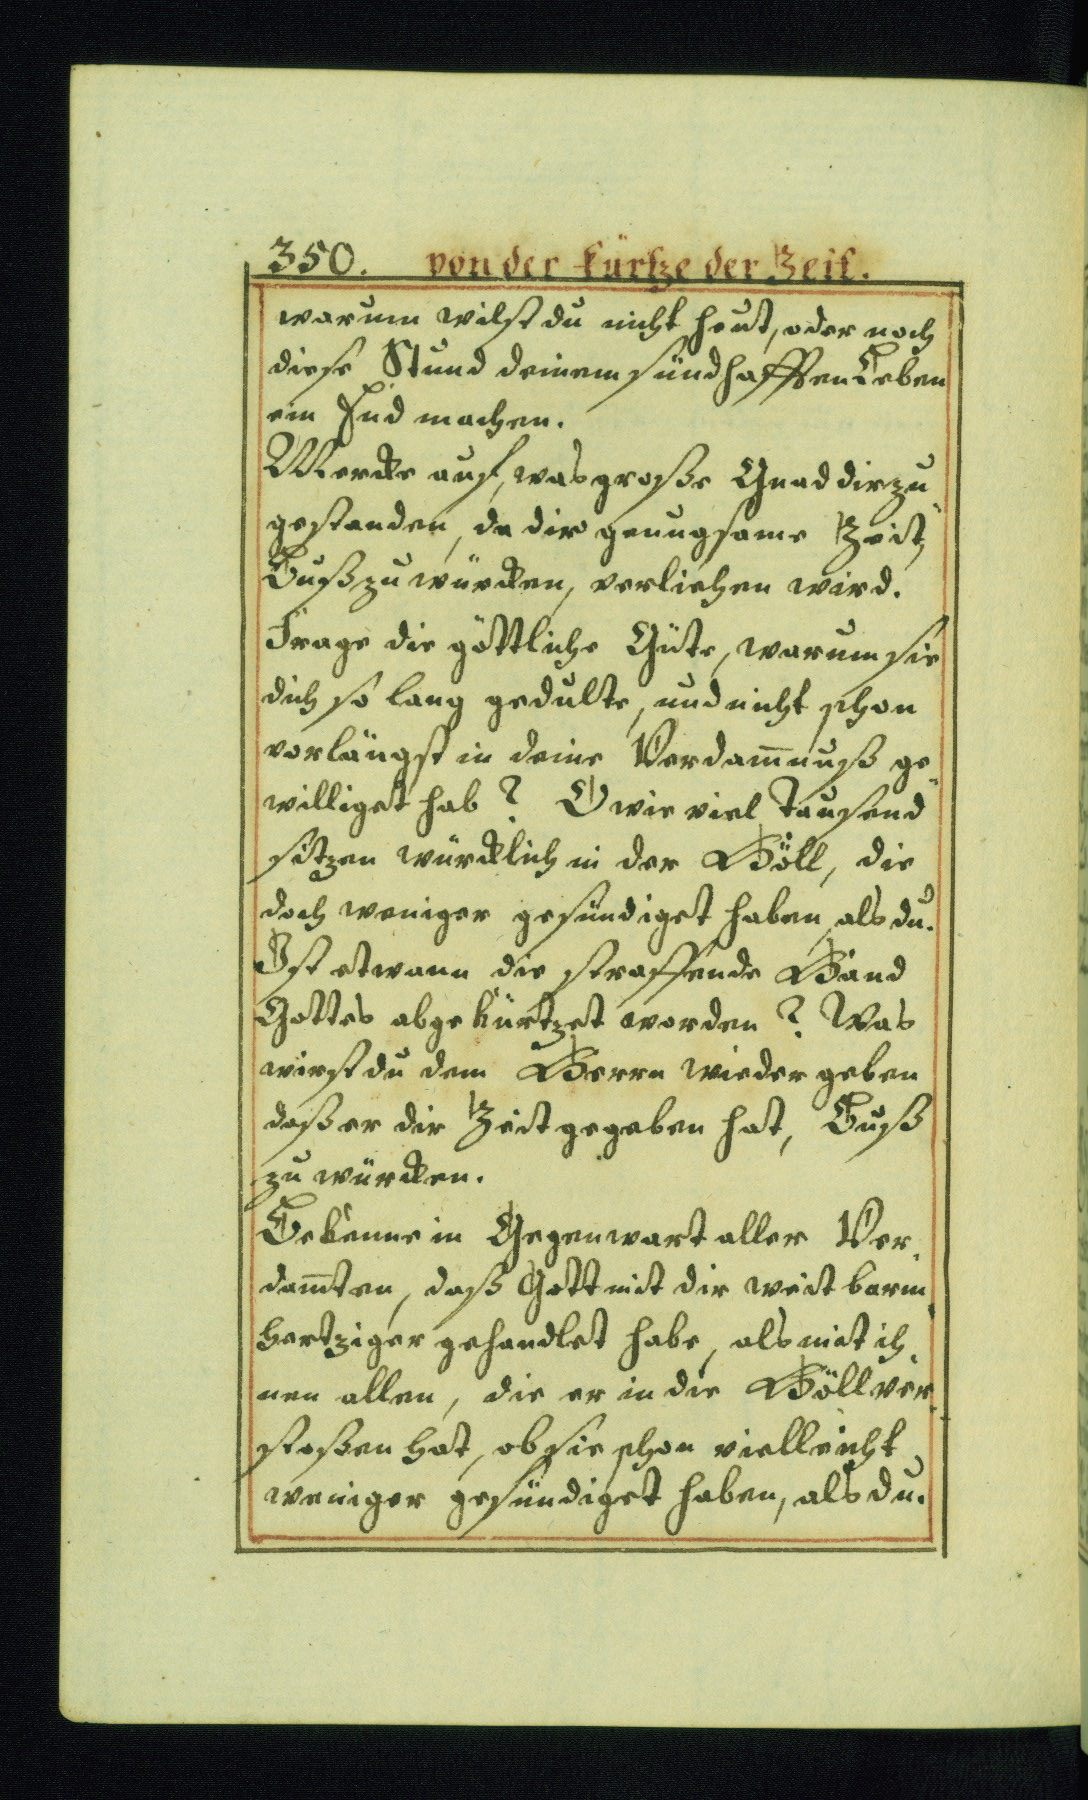 350. von der kürtze der Zeit.
warum wilst du nicht heut, oder noch
diese Stund deinem sündhafften Leben
ein End machen.
Mercke auf, was große Gnad dir zu
gestanden, da dir genugsame Zeit,
Buß zu würcken, verliehen wird.
Frage die göttliche Güte, warum sie
dich so lang gedulte, und nicht schon
vorlängst in deine Verdam̅nuß ge„
williget hab? O wie viel Tausend
sitzen würcklich in der Höll, die
doch weniger gesündiget haben, als du.
Ist etwann die straffende Hand
Gottes abgekürtzet worden? Was
wirst du dem Herrn wieder geben
daß er dir Zeit gegeben hat, Buß
zu würcken.
Bekenne in Gegenwart aller Ver„
dam̅ten, daß Gott mit dir weit barm„
hertziger gehandlet habe, als mit ih„
nen allen, die er in die Höll ver„
stoßen hat, ob sie schon vielleicht
weniger gesündiget haben, als du.